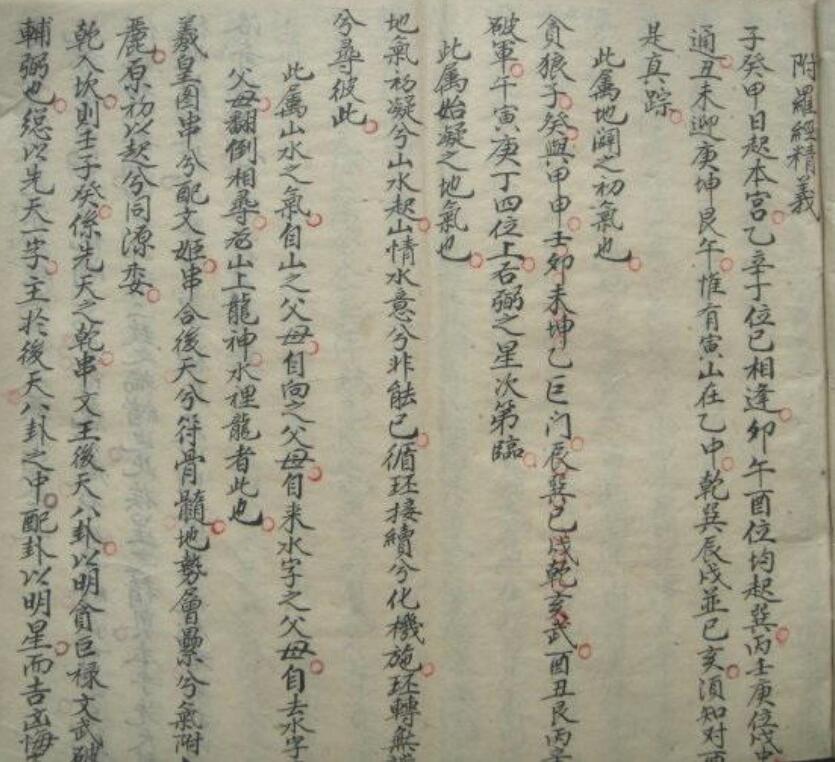 附羅經精義
子癸甲日起本宮乙辛子位已相逢卯午酉位均起巽丙壬庚位戌
通丑未迎庚坤艮午惟有寅山在乙中乾巽辰戌並已亥須知对
是真踪
此属地闢之初氣也
貪狼子癸與甲申壬卯未坤乙巨门辰巽已戌乾亥武酉丑艮丙
破軍午寅庚丁四位上右弼之星次第臨
此属始凝之地氣也
地氣初凝兮山水起山情水意兮非能已循环接續兮化機施环轉無
兮尋彼此
此属山水之氣自山之父母自向之父母自来水字之父母自去水字
父母翻倒相尋为山上龍神水裡龍者此也
羲皇图串兮配文姬串合後天兮符骨髓地勢層纍兮氣附
麗原初以起兮同源委
乾入坎則壬子癸係先天之乾串文王後天八卦以明貪巨禄文武破
輔弼也總以先天一字主於後天八卦之中配卦以明星而吉凶悔